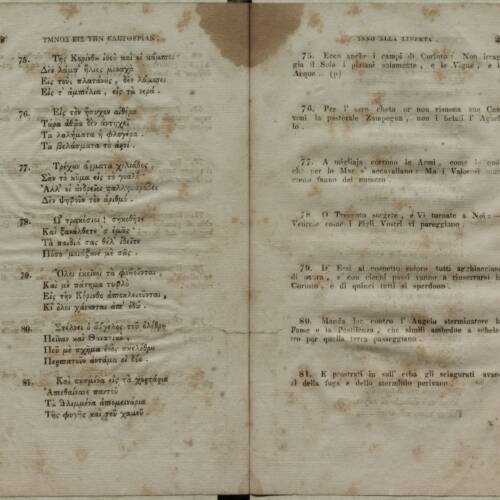 ΥΜΝΟΣ ΕΙΣ ΤΗΝ ΕΛΕΥΘΕΡΙΑΝ
75. Τῆς Κορίνθου ἰδοὺ καὶ οἱ κάμποι·
Δὲν λάμπ' ἥλιος μοναχὰ
Εἰς τοὺς πλατάνους, δὲν λάμπει
Εἰς τ' ἀμπέλια, εἰς τὰ νερά.
76. Εἰς τὸν ἥσυχον αἰθέρα
Τώρα ἀθῶα δὲν ἀντηχεῖ
Τὰ λαλήματα ἡ φλογέρα.
Τὰ βελάσματα τὸ ἀρνί.
77. Τρέχουν ἄρματα χιλιάδες
Σὰν τὸ κῦμα εἰς τὸ γιαλὸ
Ἀλλ' οἱ ἀνδρεῖοι παλληκαράδες
Δὲν ψηφοῦν τὸν ἀριθμό.
78. Ὦ τρακόσιοι! σηκωθῆτε
Καὶ ξανάλθετε 'ς ἐμᾶς·
Τὰ παιδιά σας θέλ' ἰδῆτε
Πόσο μοιάζουνε μὲ σᾶς.
79. Ὅλοι ἐκεῖνοι τὰ φοβοῦνται,
Καὶ μὲ πάτημα τυφλὸ
Εἰς τὴν Κόρινθο ἀποκλειοῦνται,
Κι ὅλοι χάνονται ἀπ' ἐδῶ.
80. Στέλνει ὁ ἄγγελος τοῦ ὀλέθρου
Πεῖναν καὶ Θανατικὸ,
Ποῦ μὲ σχῆμα ἑνὸς σκελέθρου
Περπατοῦν ἀντάμα οἱ δύο.
81. Καὶ πεσμένα εἰς τὰ χορτάρια
Ἀπεθαίνανε παντοῦ
Τὰ θλιμμένα ἀπομεινάρια
Τῆς φυγῆς καὶ τοῦ χαμοῦ
INNO ALLA LIBERTA
75. Ecco anche i campi di Corinto: Non
gia il Sole i platani solamente, e le Vigne, e
Acque... (p)
76. Per l' aere cheto or non risuona
la pastorale Zampogna, non i belati l'
lo.
77. A migliaja corrono le Armi, come
che per lo Mar s' accavallano: Ma i
conto fanno del numero.
78. O Trecento sorgete, e Vi tornate a Noi:
come i Figli Vostri vi pareggiano.
79. D' Essi al cospetto
di paura, e con ciechi passi vanno a rinserrarsi
Corinto, e di quinci tutti si sperdono.
80. Manda lor contro l' Angelo sterminatore
Fame e la Pestilenza, che simili ambedue a
tro per quella terra passeggiano.
81. E prostrati in sull' erba gli sciagurati
zi della fuga e dello sterminio perivano